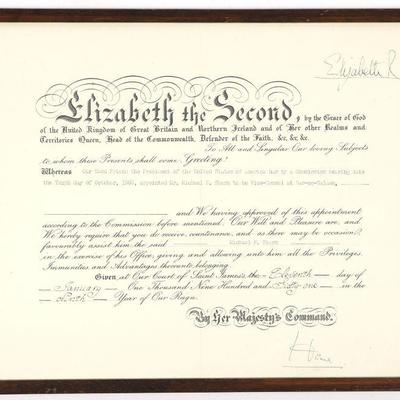 Elizabeth R
Elizabeth the Second, by the Grace of God
of the United Kingdom of Great Britain and Northern Ireland and of Her other Realms and
Territories Queen, Head of the Commonwealth, Defender of the Faith, &c. &c. &c.
To All and Singular Our loving Subjects
to whom these Presents shall come, Greeting!
Whereas Our Good Friend the President of the United States of America has by a Commission bearing date
the Tenth day of October, 1960, appointed Mr. Michael P. to be Vice-Consul at
and We having approved of this appointment
according to the Commission before mentioned, Our Will and Pleasure are, and
We hereby require that you do receive, countenance, and as there may be occasion,
favourably assist him the said Michael P.
in the exercise of his Office, giving and allowing unto him all the Privileges,
Immunities and Advantages thereunto belonging.
Given at Our Court of Saint James's, the Eleventh day of
January One Thousand Nine Hundred and Sixty one in the
Ninth Year of Our Reign.
By Her Majesty's Command.
Home